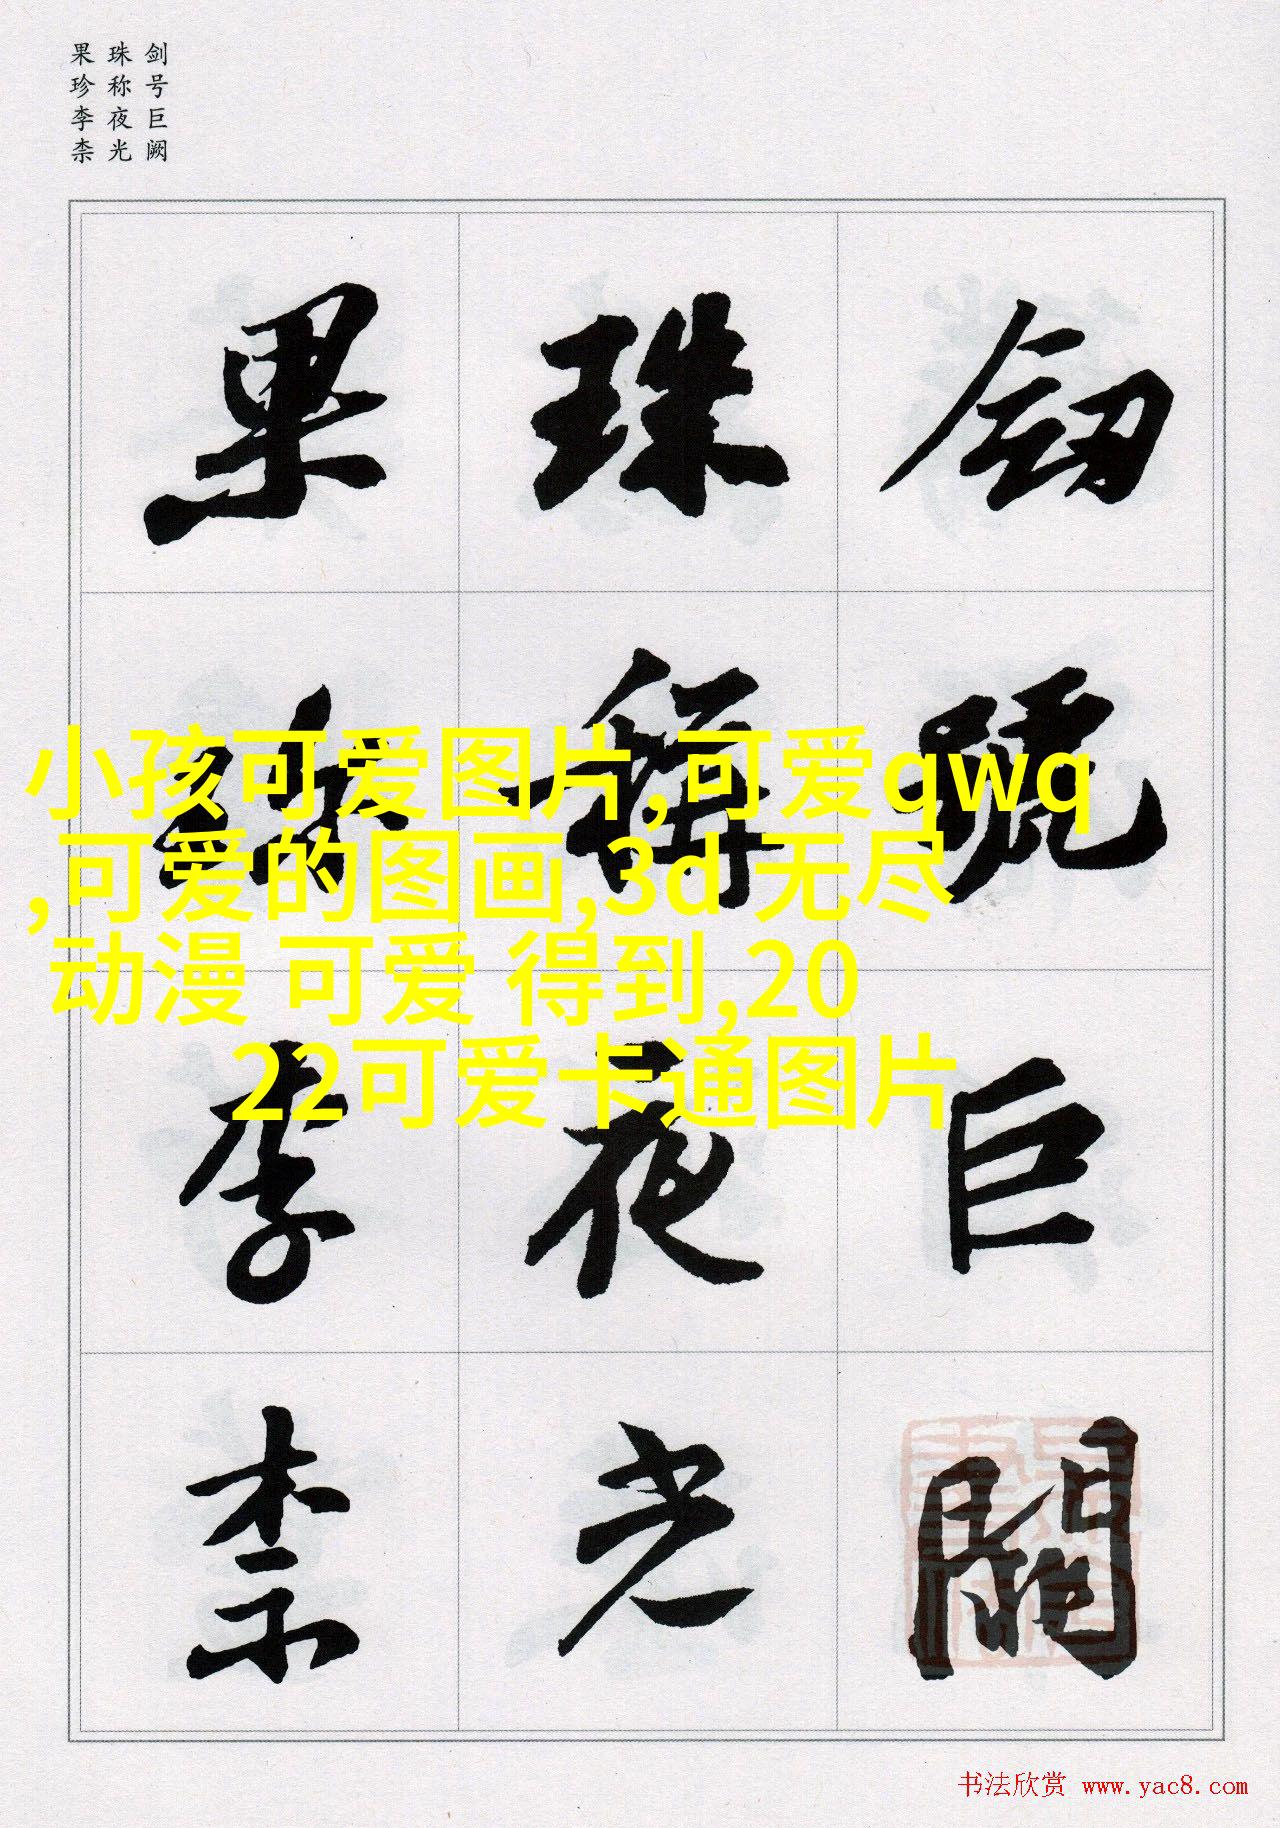 剑号巨阙
珠称夜光
果珍李柰
釼號巨闕
珠稱夜光
果珎李柰
小孩可爱图片,可爱qwq
,可爱的图画,3d 无尽
动漫 可爱 得到,20
22可爱卡通图片
书法欣赏 www.yac8.com